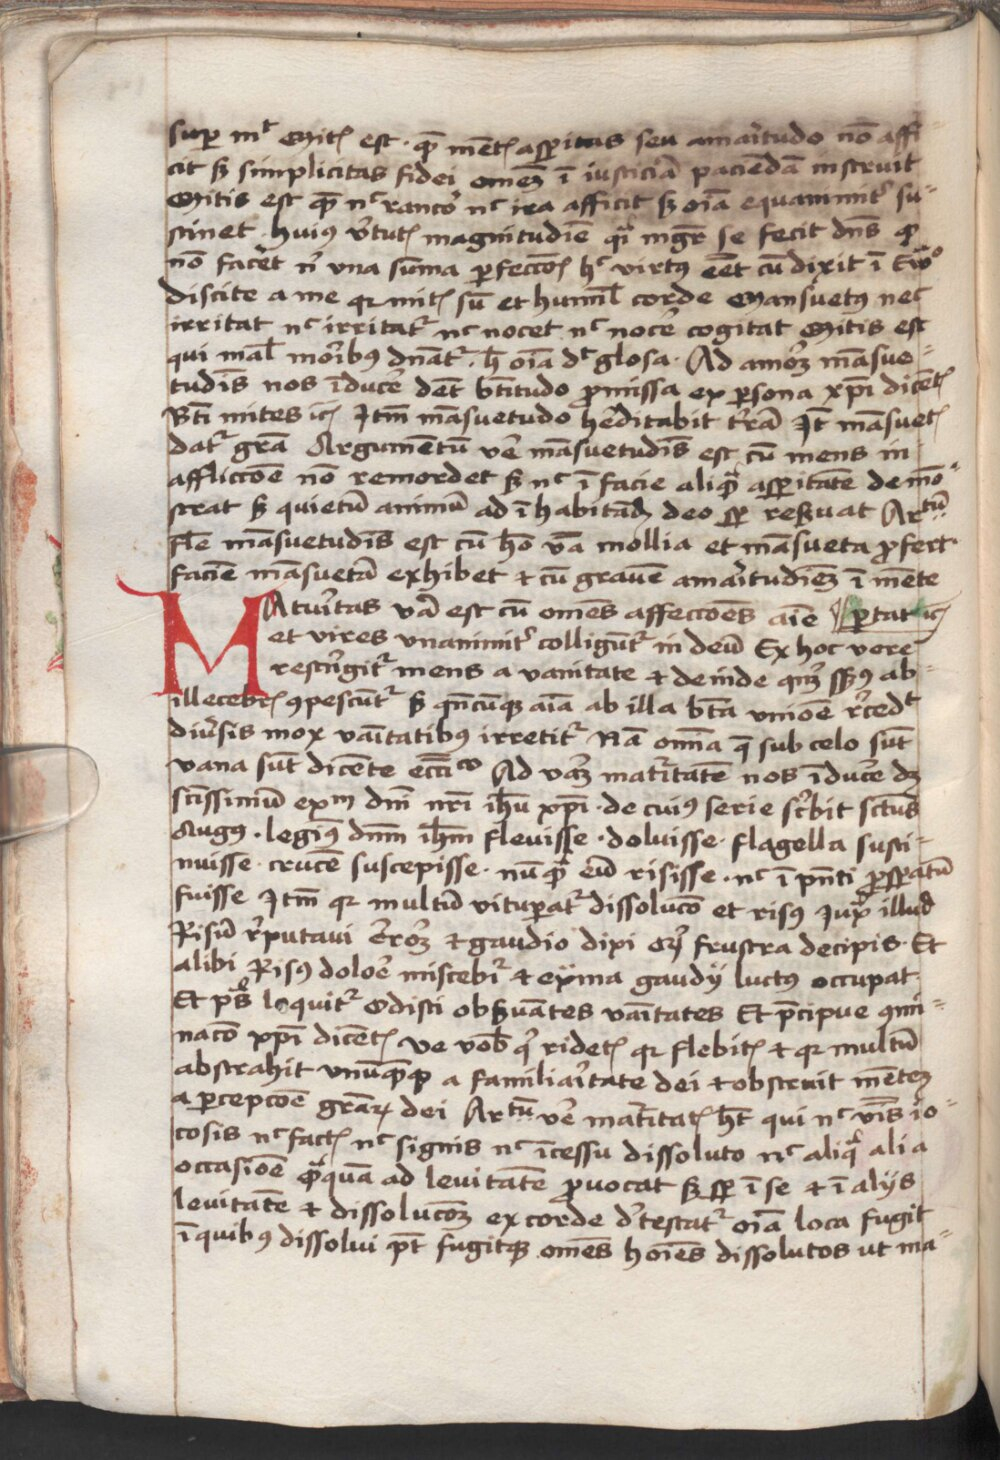 sup mt Mitis est · quem mentis aspitas seu amaritudo nō affi-
cit sꝫ simplicitas fidei omnem ī iusticiā paciendā instruit
Mitis est quē nc rancor nc ira afficit sꝫ oīa equanimitr su-
stinet · huius vtutis magnitudinē qr mgrm se fecit dns qd
nō facet ni una suma pfeccois hec virtus eēt cū dixit ī Ewo
discite a me qr mitis sū et humil corde Mansuetus nec
irritat nc irritatr nc nocet nc nocere cogitat Mitis est
qui mal moribus dnatr · h oīa dt glosa · Ad amorꝫ māsue-
tudīs nos īducere debet btitudo pmissa ex psona xpi dicetis
Bti mites ic Itm māsuetudo heditabit trā It māsuetis
datr grā Argumētū vere māsuetudīs est cū mens in
affliccōe nō remordet sꝫ nc ī facie aliquā aspitatē demō-
strat sꝫ quietū animū ad īhabitadū deo sp reseruat Artū
fle māsuetudīs est cū ho vba mollia et māsueta pfert
faciē māsuetā exhibet et cū grauē amaritudinē ī mēte
MAturitas vera est cū omēs affeccoēs aīe portat ic
et vires vnanimitr colligūtr in deū Ex hoc vere
restrigitr mens a vanitate et deinde qnqꝫ sensus ab
illecebris 9pescūtr sꝫ qncūqꝫ aīa ab illa bta unioe recedt
diuersis mox vaītatibus irretitr Nā omīa q sub celo sūt
vana sūt dicente eccico Ad verā maturitatē nos īducere dꝫ
sctissimū exm dnī nrī ihu xpī · de cuius serie scribit sctus
Augus · legimus dnm ihm fleuisse · doluisse · flagella susti-
nuisse · crucē suscepisse · nūquā eū risisse · nc ī pnti prosperatū
fuisse Itm qr multū vituperatr dissolucō et risus Iuxta illud
Risū reputaui errorē et gaudio dixi cur frustra decipis · Et
alibi Risus dolore miscebir et exīma gaudij luctus occupat
Et ps loquitr Odisti obseruātes vaītates Et pcipue 9mi-
nacō xpī dicetis ve vob qui ridetis qr flebitis et qr multū
abstrahit vnūquēqꝫ a familiaritate dei et obstruit mētē
a pcepcōe grarum dei Artū vere maturitatis ht qui nc verbis io-
cosis nc factis nc signis nc īcessu dissoluto nc aliqua alia
occasiōe quēquā ad leuitatē prouocat sꝫ sp ī se et ī alijs
leuitatē et dissolucōꝫ ex corde detestatr oīa loca fugit
ī quibus dissolui pt fugitqꝫ omēs hoīes dissolutos ut ma-